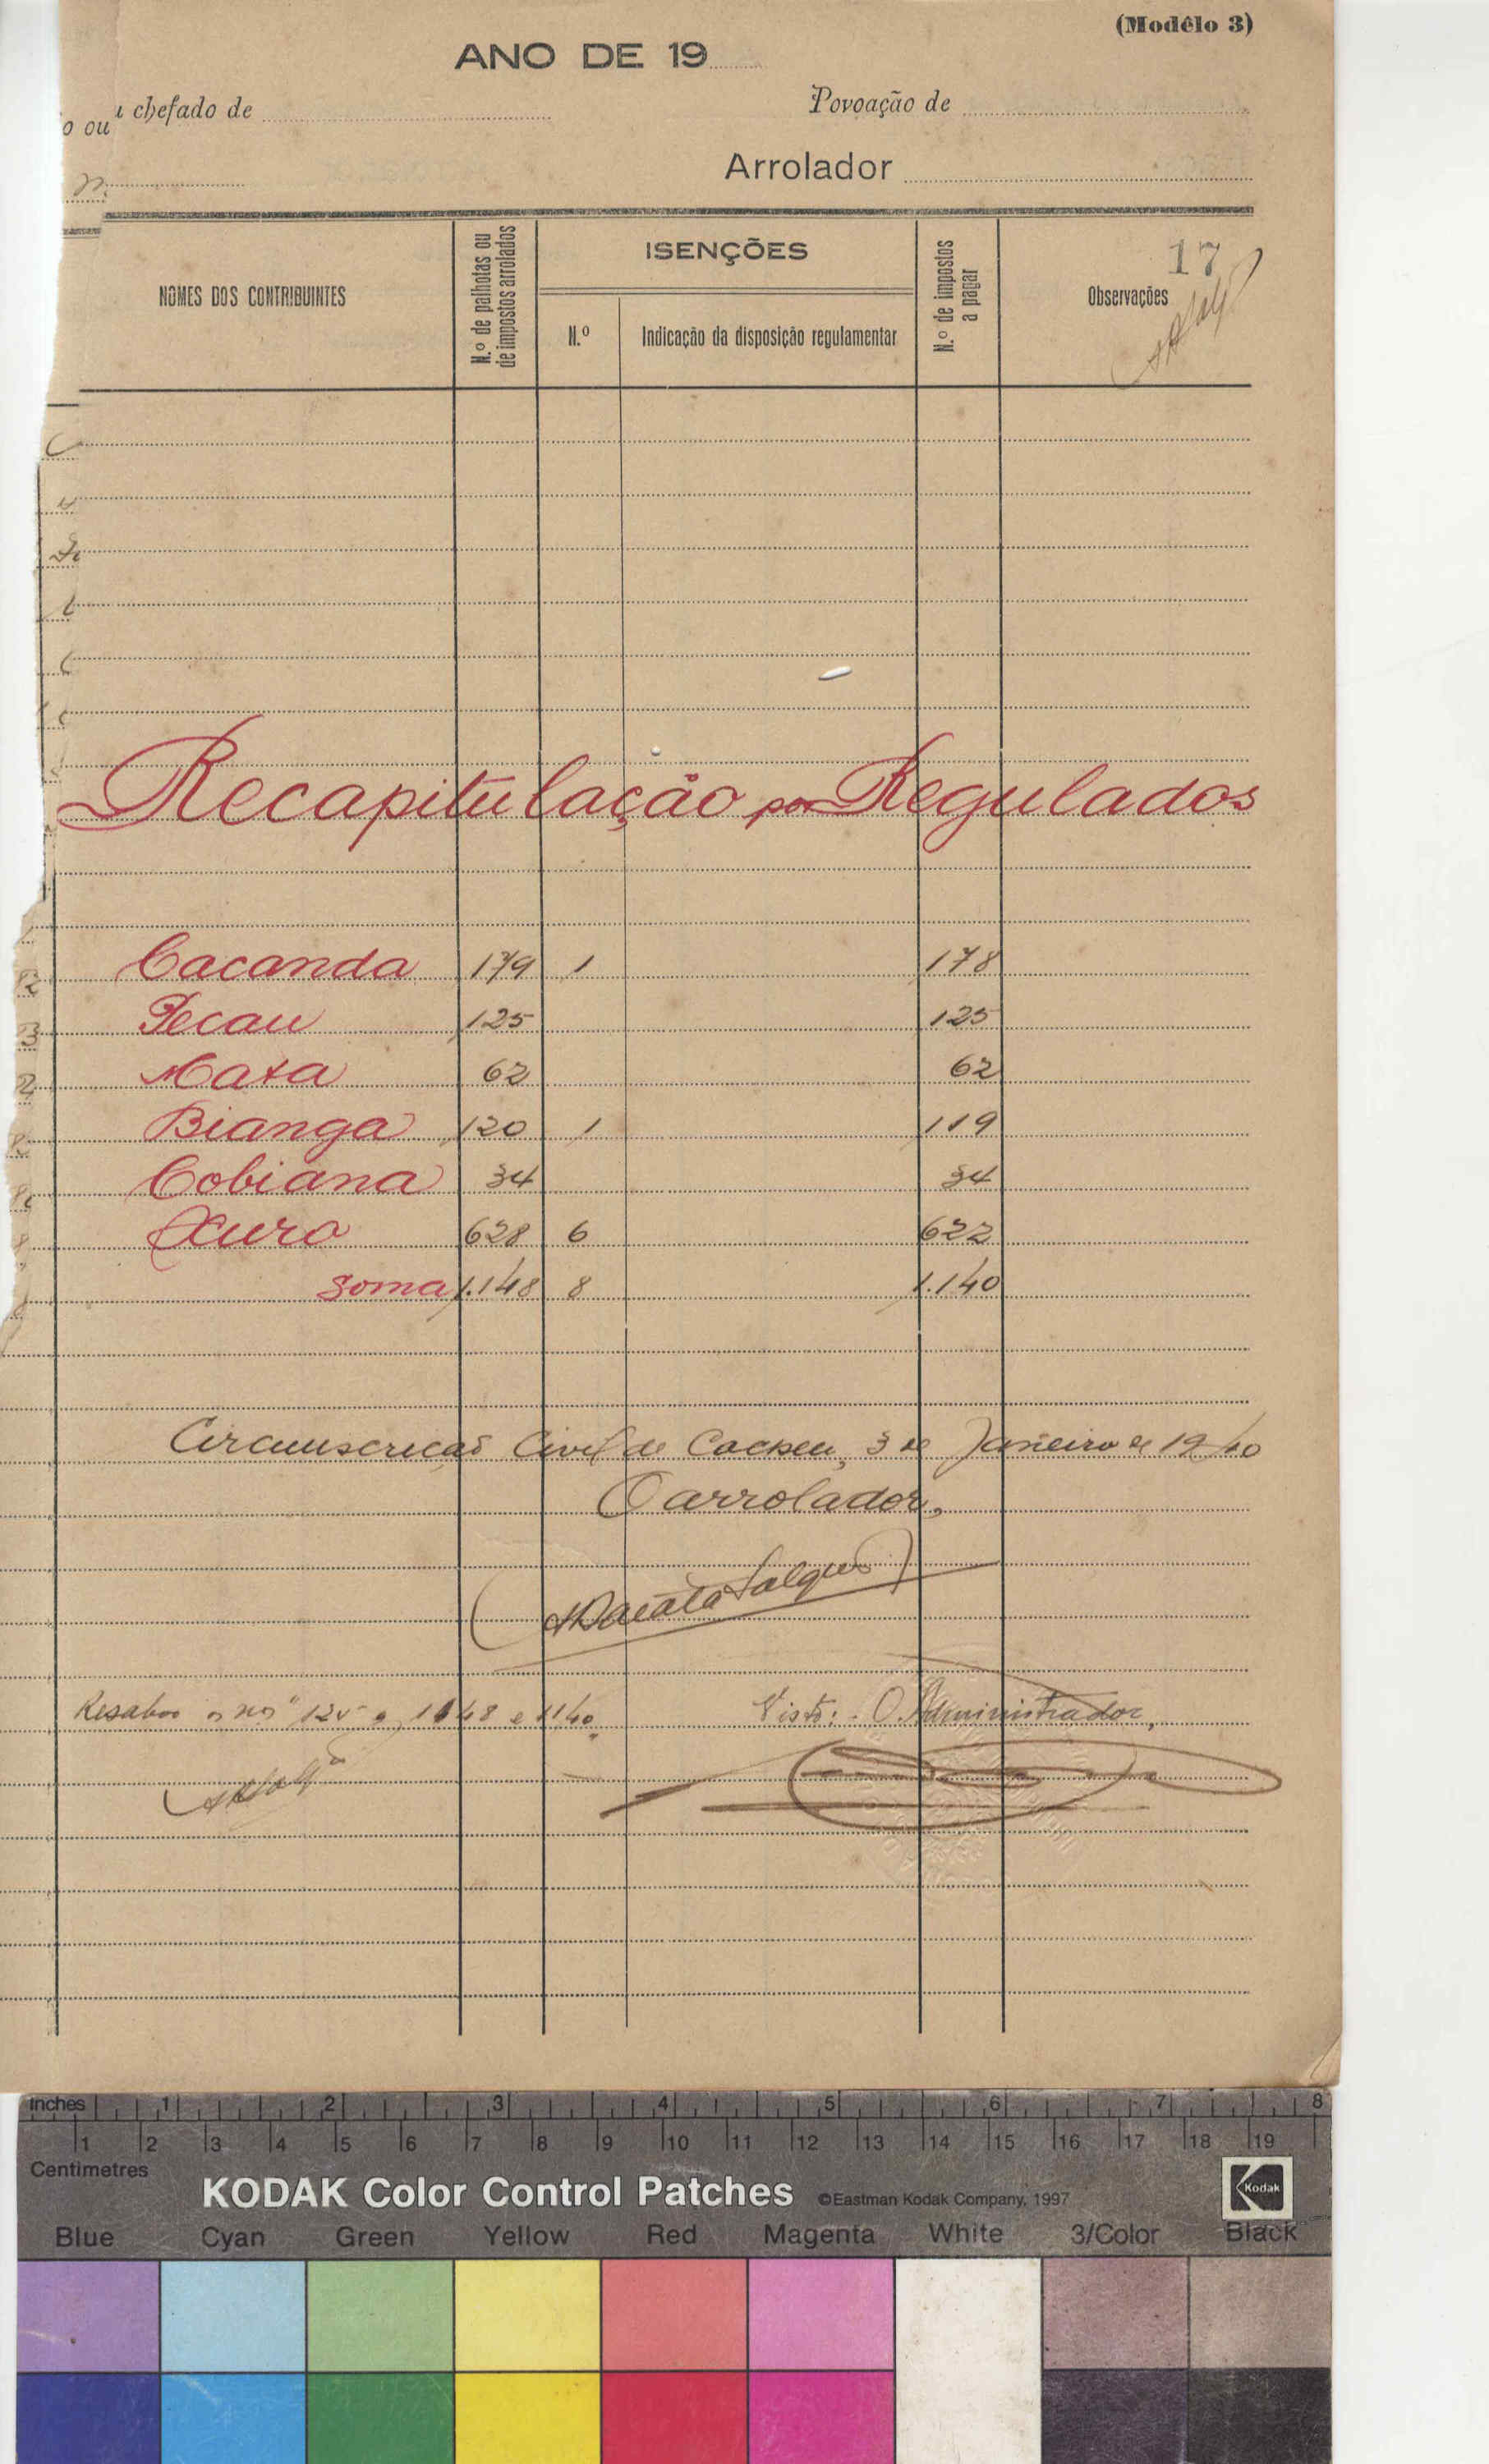 (Modêlo 3)
ANO DE 19
o ou
chefado de
Povoação de
Arrolador
NOMES DOS CONTRIBUINTES
N.º de palhotas ou de impostos arrolados
ISENÇÕES
N.º
Indicação da disposição regulamentar
N.º de impostos a pagar
Observações
17
Recapitulação por Regulados
Cacanda 179 1 178
Pecau 125 125
Mata 62 62
Bianga 120 1 119
Cobiana 34 34
Xuro 628 6 622
Soma 1.148 8 1.140
Circunscrição Civil de Cacheu, 3 de Janeiro de 1940
O arrolador,
Resalvo os nos 125 e 1148 e 1140.
Visto: - O Administrador,
inches 1 2 3 4 5 6 7 8
1 2 3 4 5 6 7 8 9 10 11 12 13 14 15 16 17 18 19
Centimetres
KODAK Color Control Patches ©Eastman Kodak Company, 1997 Kodak
Blue Cyan Green Yellow Red Magenta White 3/Color Black